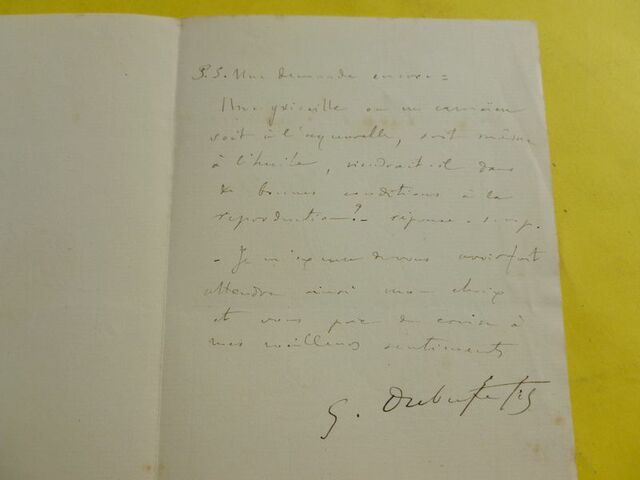 P.S. Une demande encore =
Une grisaille ou un camaïeu
soit à l'aquarelle, soit même
à l'huile, viendrait-il dans
de bonnes conditions à la
reproduction? - réponse. s.v.p.
- Je m'excuse de vous avoir fait
attendre ainsi mon choix
et vous prie de croire à
mes meilleurs sentiments
G. Dubufe fils